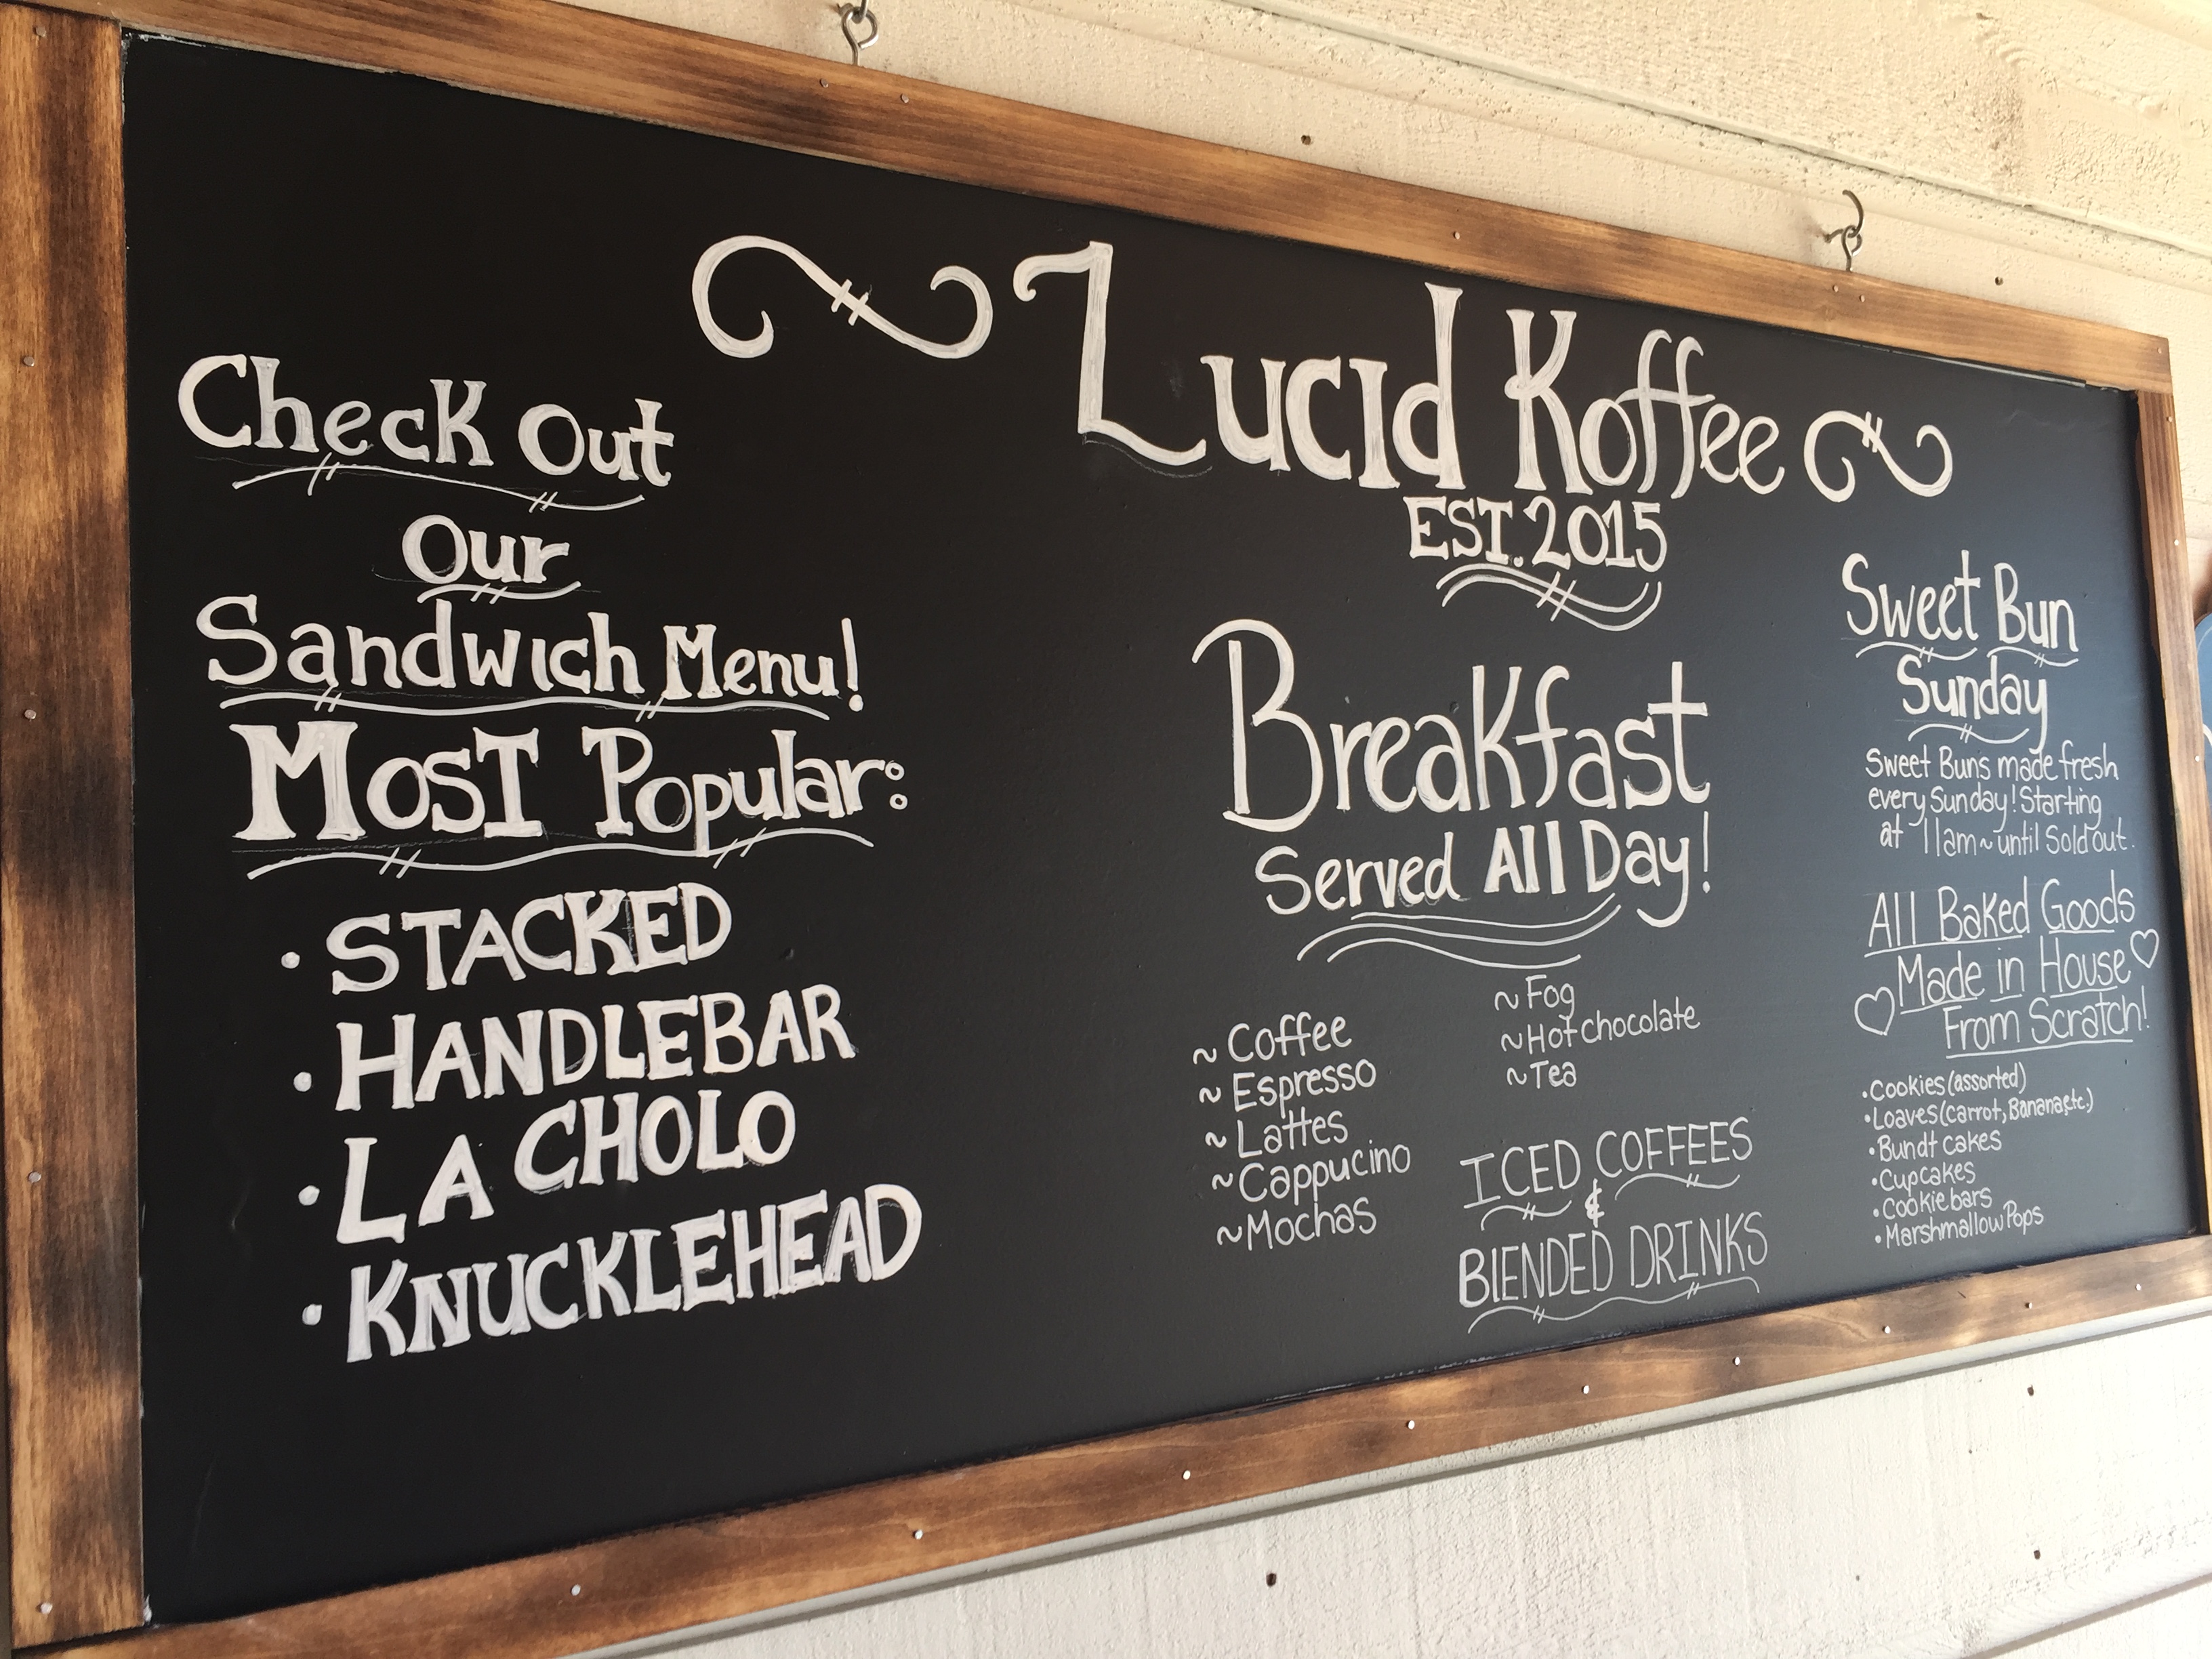 Lucid Koffee
EST. 2015
Check Out
Our
Sandwich Menu!
Most Popular:
• STACKED
• HANDLEBAR
• LA CHOLO
• KNUCKLEHEAD
Breakfast
Served All Day!
~ Coffee
~ Espresso
~ Lattes
~ Cappucino
~ Mochas
~ Fog
~ Hot chocolate
~ Tea
ICED COFFEES
&
BLENDED DRINKS
Sweet Bun
Sunday
Sweet Buns made fresh
every Sunday! Starting
at 11am ~ until Sold out.
All Baked Goods
Made in House
From Scratch!
• Cookies (assorted)
• Loaves (carrot, Banana, etc.)
• Bundt cakes
• Cupcakes
• Cookie bars
• Marshmallow Pops